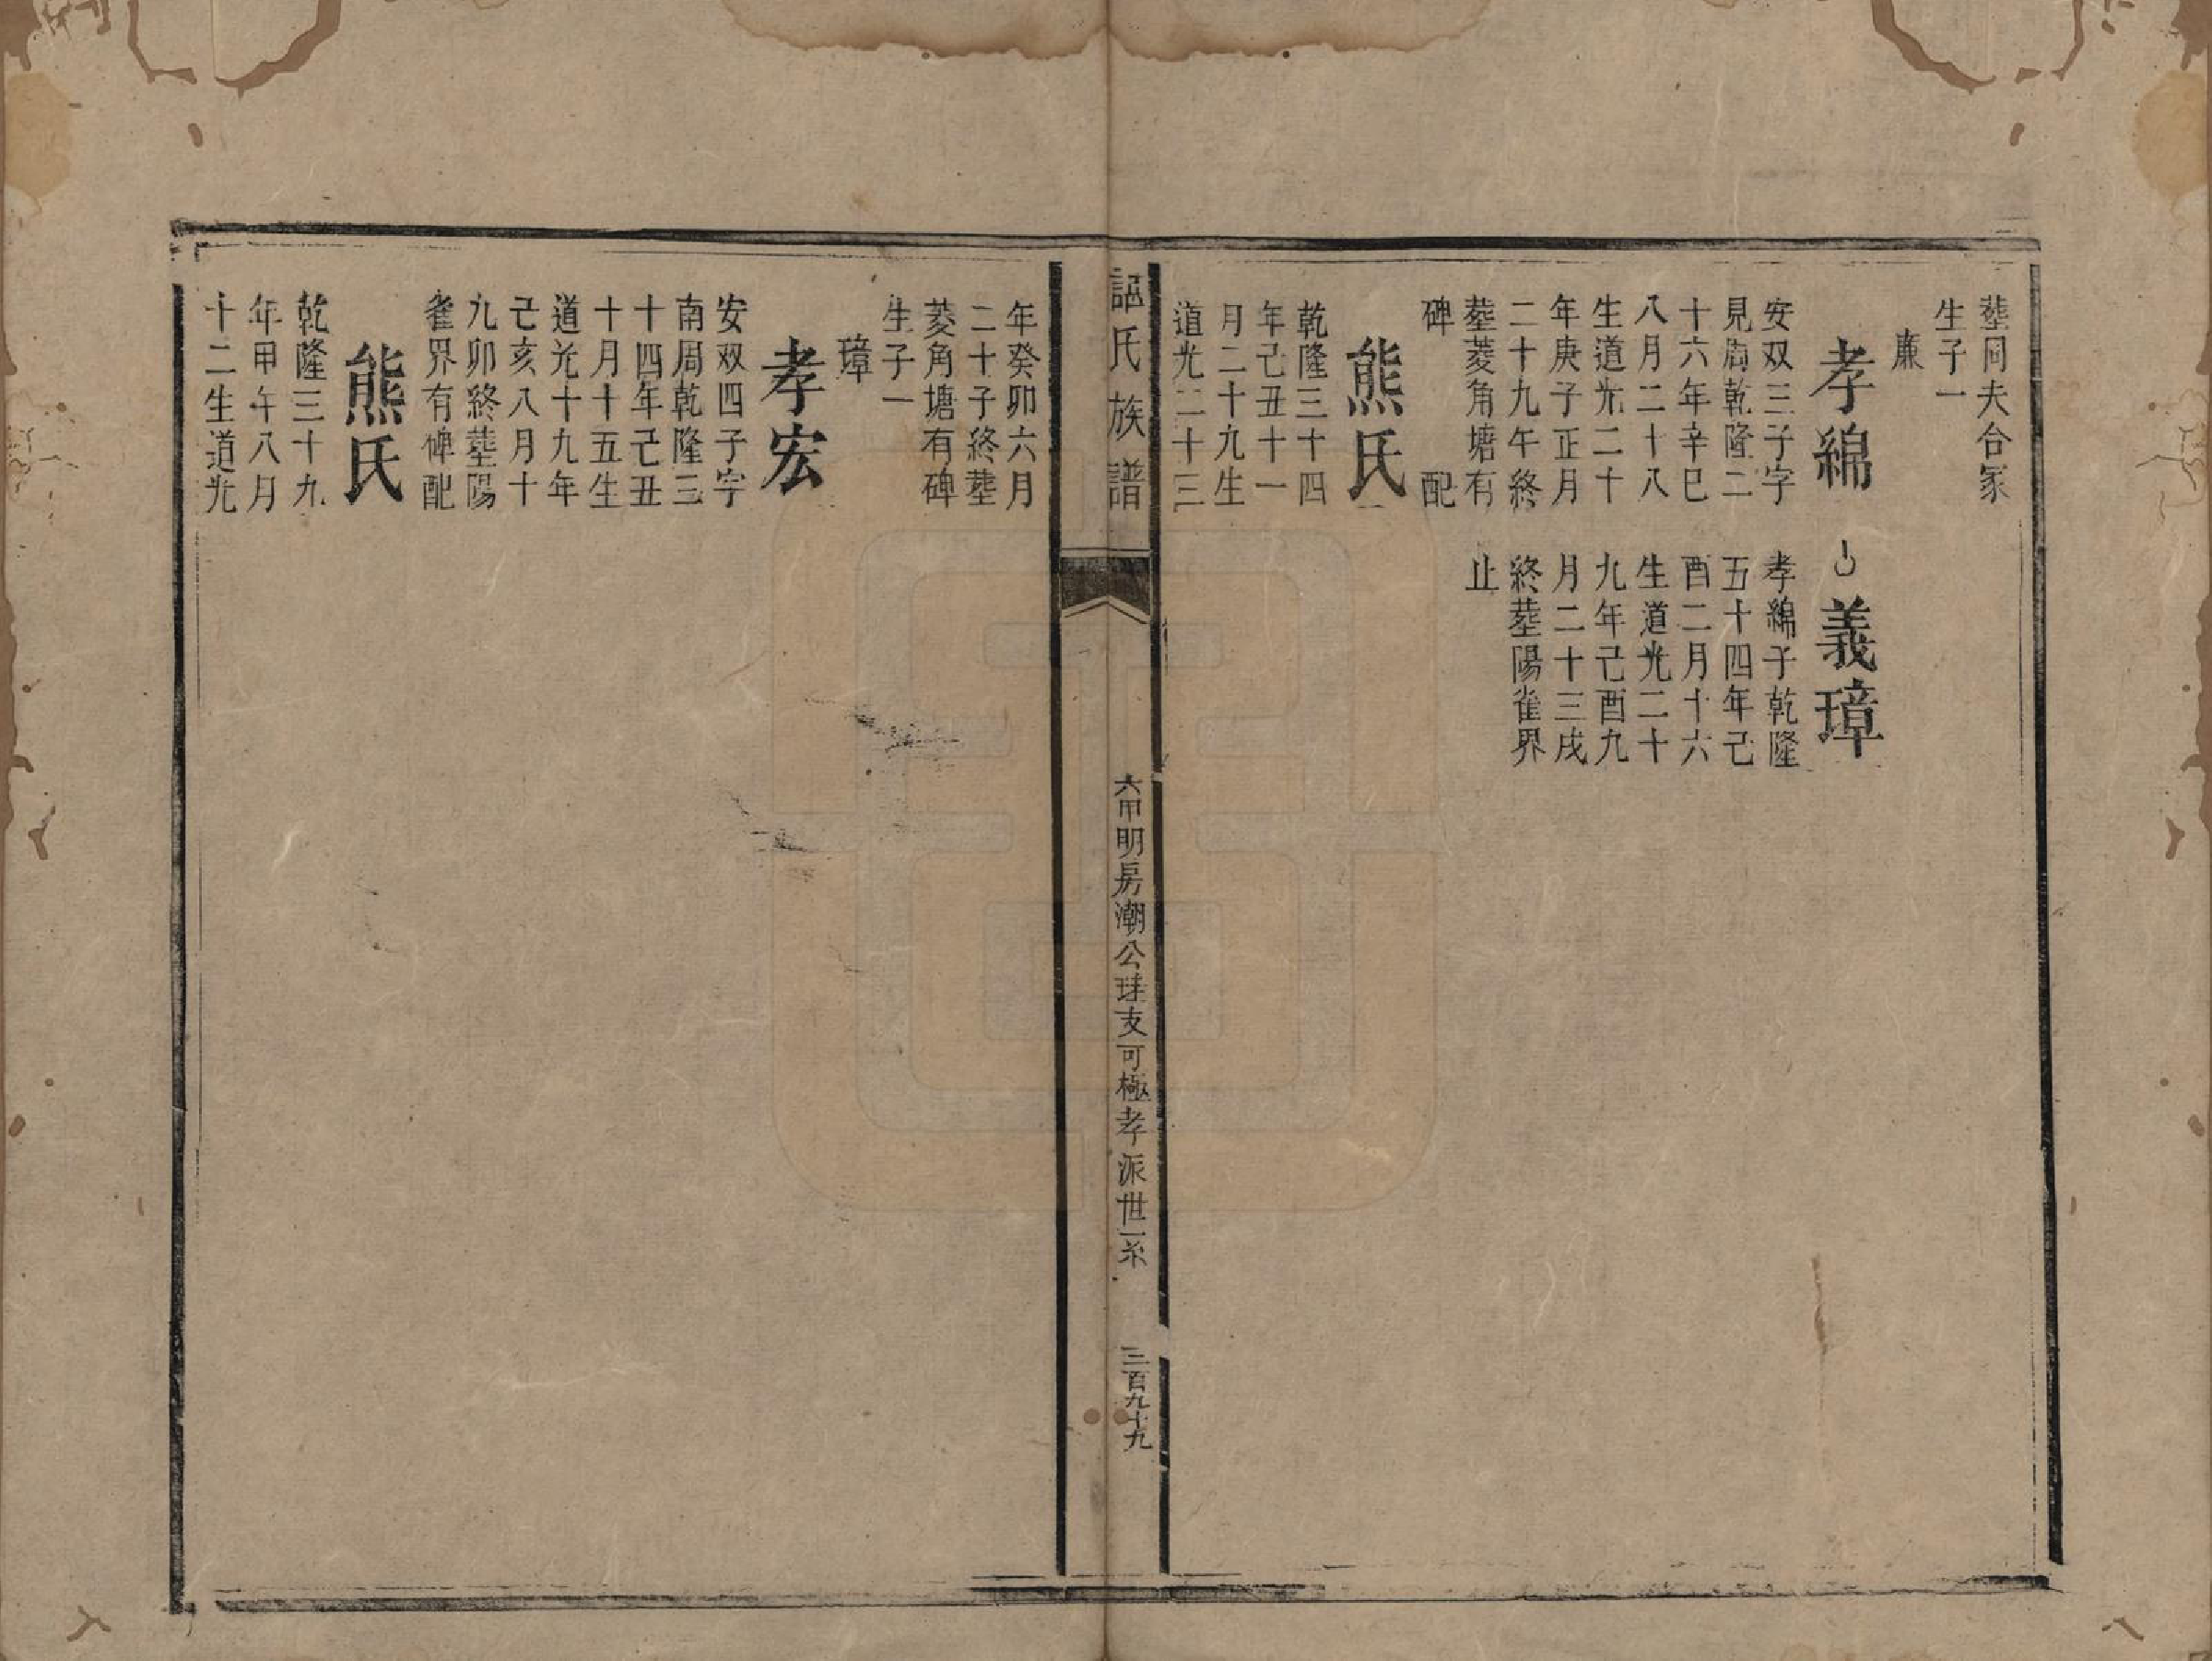 塟同夫合冢
生子一
廉
孝綿
安双三子字
見周乾隆二
十六年辛巳
八月二十八
生道光二十
年庚子正月
二十九午終
塟菱角塘有
碑 配
義璋
孝綿子乾隆
五十四年己
酉二月十六
生道光二十
九年己酉九
月二十三戌
終塟陽雀界
止
熊氏
乾隆三十四
年己丑十一
月二十九生
道光二十三
謳氏族譜
六甲明房潮公珪支可極孝派世系
三百九十九
年癸卯六月
二十子終塟
菱角塘有碑
生子一
璋
孝宏
安双四子字
南周乾隆三
十四年己丑
十月十五生
道光十九年
己亥八月十
九卯終塟陽
雀界有碑配
熊氏
乾隆三十九
年甲午八月
十二生道光